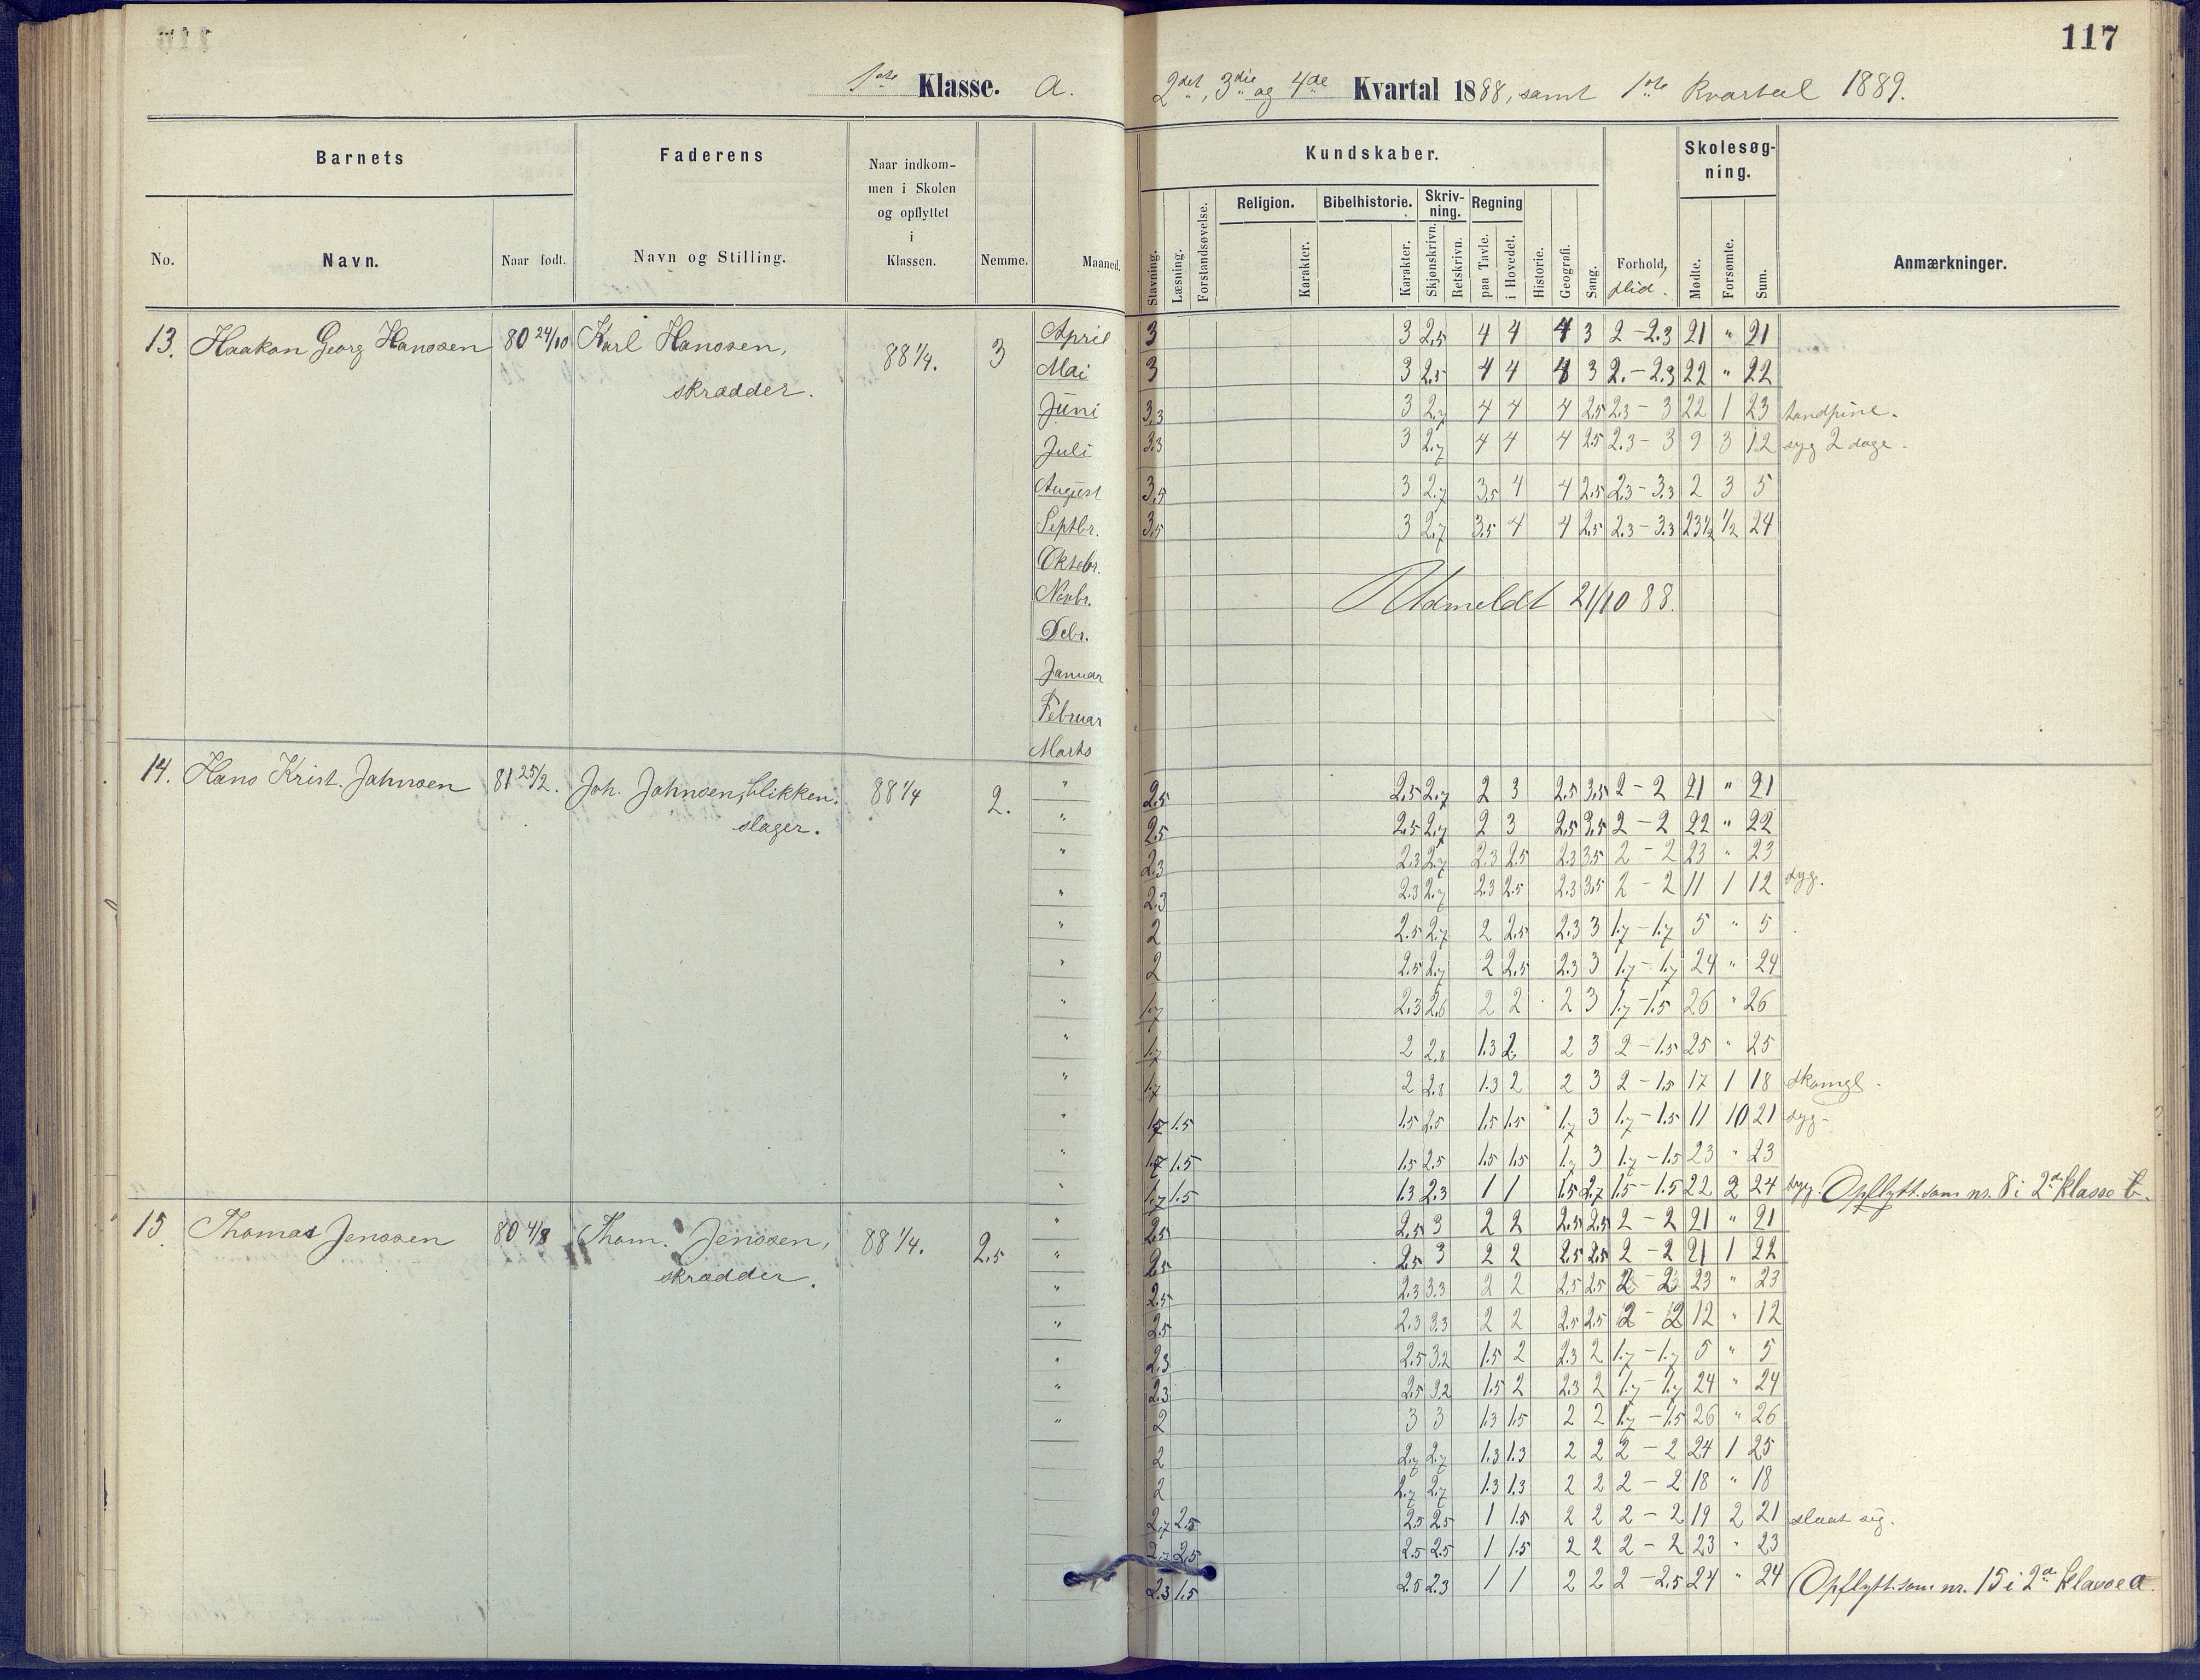 117
1ste Klasse. a. 2det, 3die og 4de Kvartal 1888, samt 1ste Kvartal 1889.
Barnets Faderens Naar indkom-men i Skolen og opflyttet i Klassen. Nemme. Maaned. Kundskaber. Skolesøg-ning. Anmærkninger.
No. Navn. Naar født. Navn og Stilling. Stavning. Læsning. Forstandsøvelse. Religion. Karakter. Bibelhistorie. Karakter. Skriv-ning. Skjønskrivn. Retskrivn. Regning paa Tavle. i Hovedet. Historie. Geografi. Sang. Forhold, flid. Mødte. Forsømte. Sum.
13. Haakon Georg Hanssen 80 24/10 Karl Hanssen, 88 1/4. 3 April 3 3 2,5 4 4 4 3 2 - 2.3 21 " 21
skrædder. Mai 3 3 2,5 4 4 4 3 2. - 2.3 22 " 22
Juni 3,3 3 2,7 4 4 4 2.5 2.3 - 3 22 1 23 tandpine.
Juli 3.3 3 2,7 4 4 4 2.5 2.3 - 3 9 3 12 syg 2 dage.
August 3,5 3 2,7 3,5 4 4 2.5 2.3 - 3.3 2 3 5
Septbr. 3,5 3 2,7 3.5 4 4 2.5 2.3 - 3.3 23 1/2 1/2 24
Oktobr.
Novbr. Udmeldt 21/10 88.
Debr.
Januar
Februar
Marts
14. Hans Krist. Johnsen 81 25/2. Joh. Johnsen, blikken- 88 1/4 2. " 2.5 2.5 2.7 2 3 2.5 3.5 2 - 2 21 " 21
slager. " 2.5 2.5 2.7 2 3 2.5 3.5 2 - 2 22 " 22
" 2.3 2.3 2.7 2.3 2.5 2.3 3.5 2 - 2 23 " 23
" 2.3 2.3 2.7 2.3 2.5 2.3 3.5 2 - 2 11 1 12 syg.
" 2 2.5 2.7 2 2.5 2.3 3 1.7 - 1.7 5 " 5
" 2 2.5 2.7 2 2.5 2.3 3 1.7 - 1.7 24 " 24
" 1.7 2.3 2.6 2 2 2 3 1.7 - 1.5 26 " 26
" 1.7 2 2.8 1.3 2 2 3 2 - 1.5 25 " 25
" 1.7 2 2.8 1.3 2 2 3 2 - 1.5 17 1 18 skomgl.
" 1.7 1.5 1.5 2.5 1.5 1.5 1.7 3 1.7 - 1.5 11 10 21 syg-
" 1.7 1.5 1.5 2.5 1.5 1.5 1.7 3 1.7 - 1.5 23 " 23
" 1.7 1.5 1.3 2.3 1 1 1.5 2.7 1.5 - 1.5 22 2 24 syg. Opflytt. som nr. 8 i 2den klasse b.
15. Thomas Jenssen 80 4/8 Thom. Jenssen, 88 1/4. 2.5 " 2.5 2.5 3 2 2 2.5 2.5 2 - 2 21 " 21
skrædder. " 2.5 2.5 3 2 2 2.5 2.5 2 - 2 21 1 22
" 2.5 2.3 3.3 2 2 2.5 2.5 2 - 2 23 " 23
" 2.5 2.3 3.3 2 2 2.5 2.5 2 - 2 12 " 12
" 2.3 2.5 3.2 1.5 2 2.3 2 1.7 - 1.7 5 " 5
" 2.3 2.5 3.2 1.5 2 2.3 2 1.7 - 1.7 24 " 24
" 2 3 3 1.3 1.5 2 2 1.7 - 1.5 26 " 26
2 2.7 2.7 1.3 1.3 2 2 2 - 2 24 1 25
2 2.7 2.7 1.3 1.3 2 2 2 - 2 18 " 18
2.7 2.5 2.5 2.5 1 1.5 2 2 2 - 2 19 2 21 slaat sig.
2.7 2.5 2.5 2.5 1 1.5 2 2 2 - 2 23 " 23
2.3 1.5 2.5 2.3 1 1 2 2 2 - 2.5 24 " 24 Opflytt. som nr. 15 i 2den klasse a.